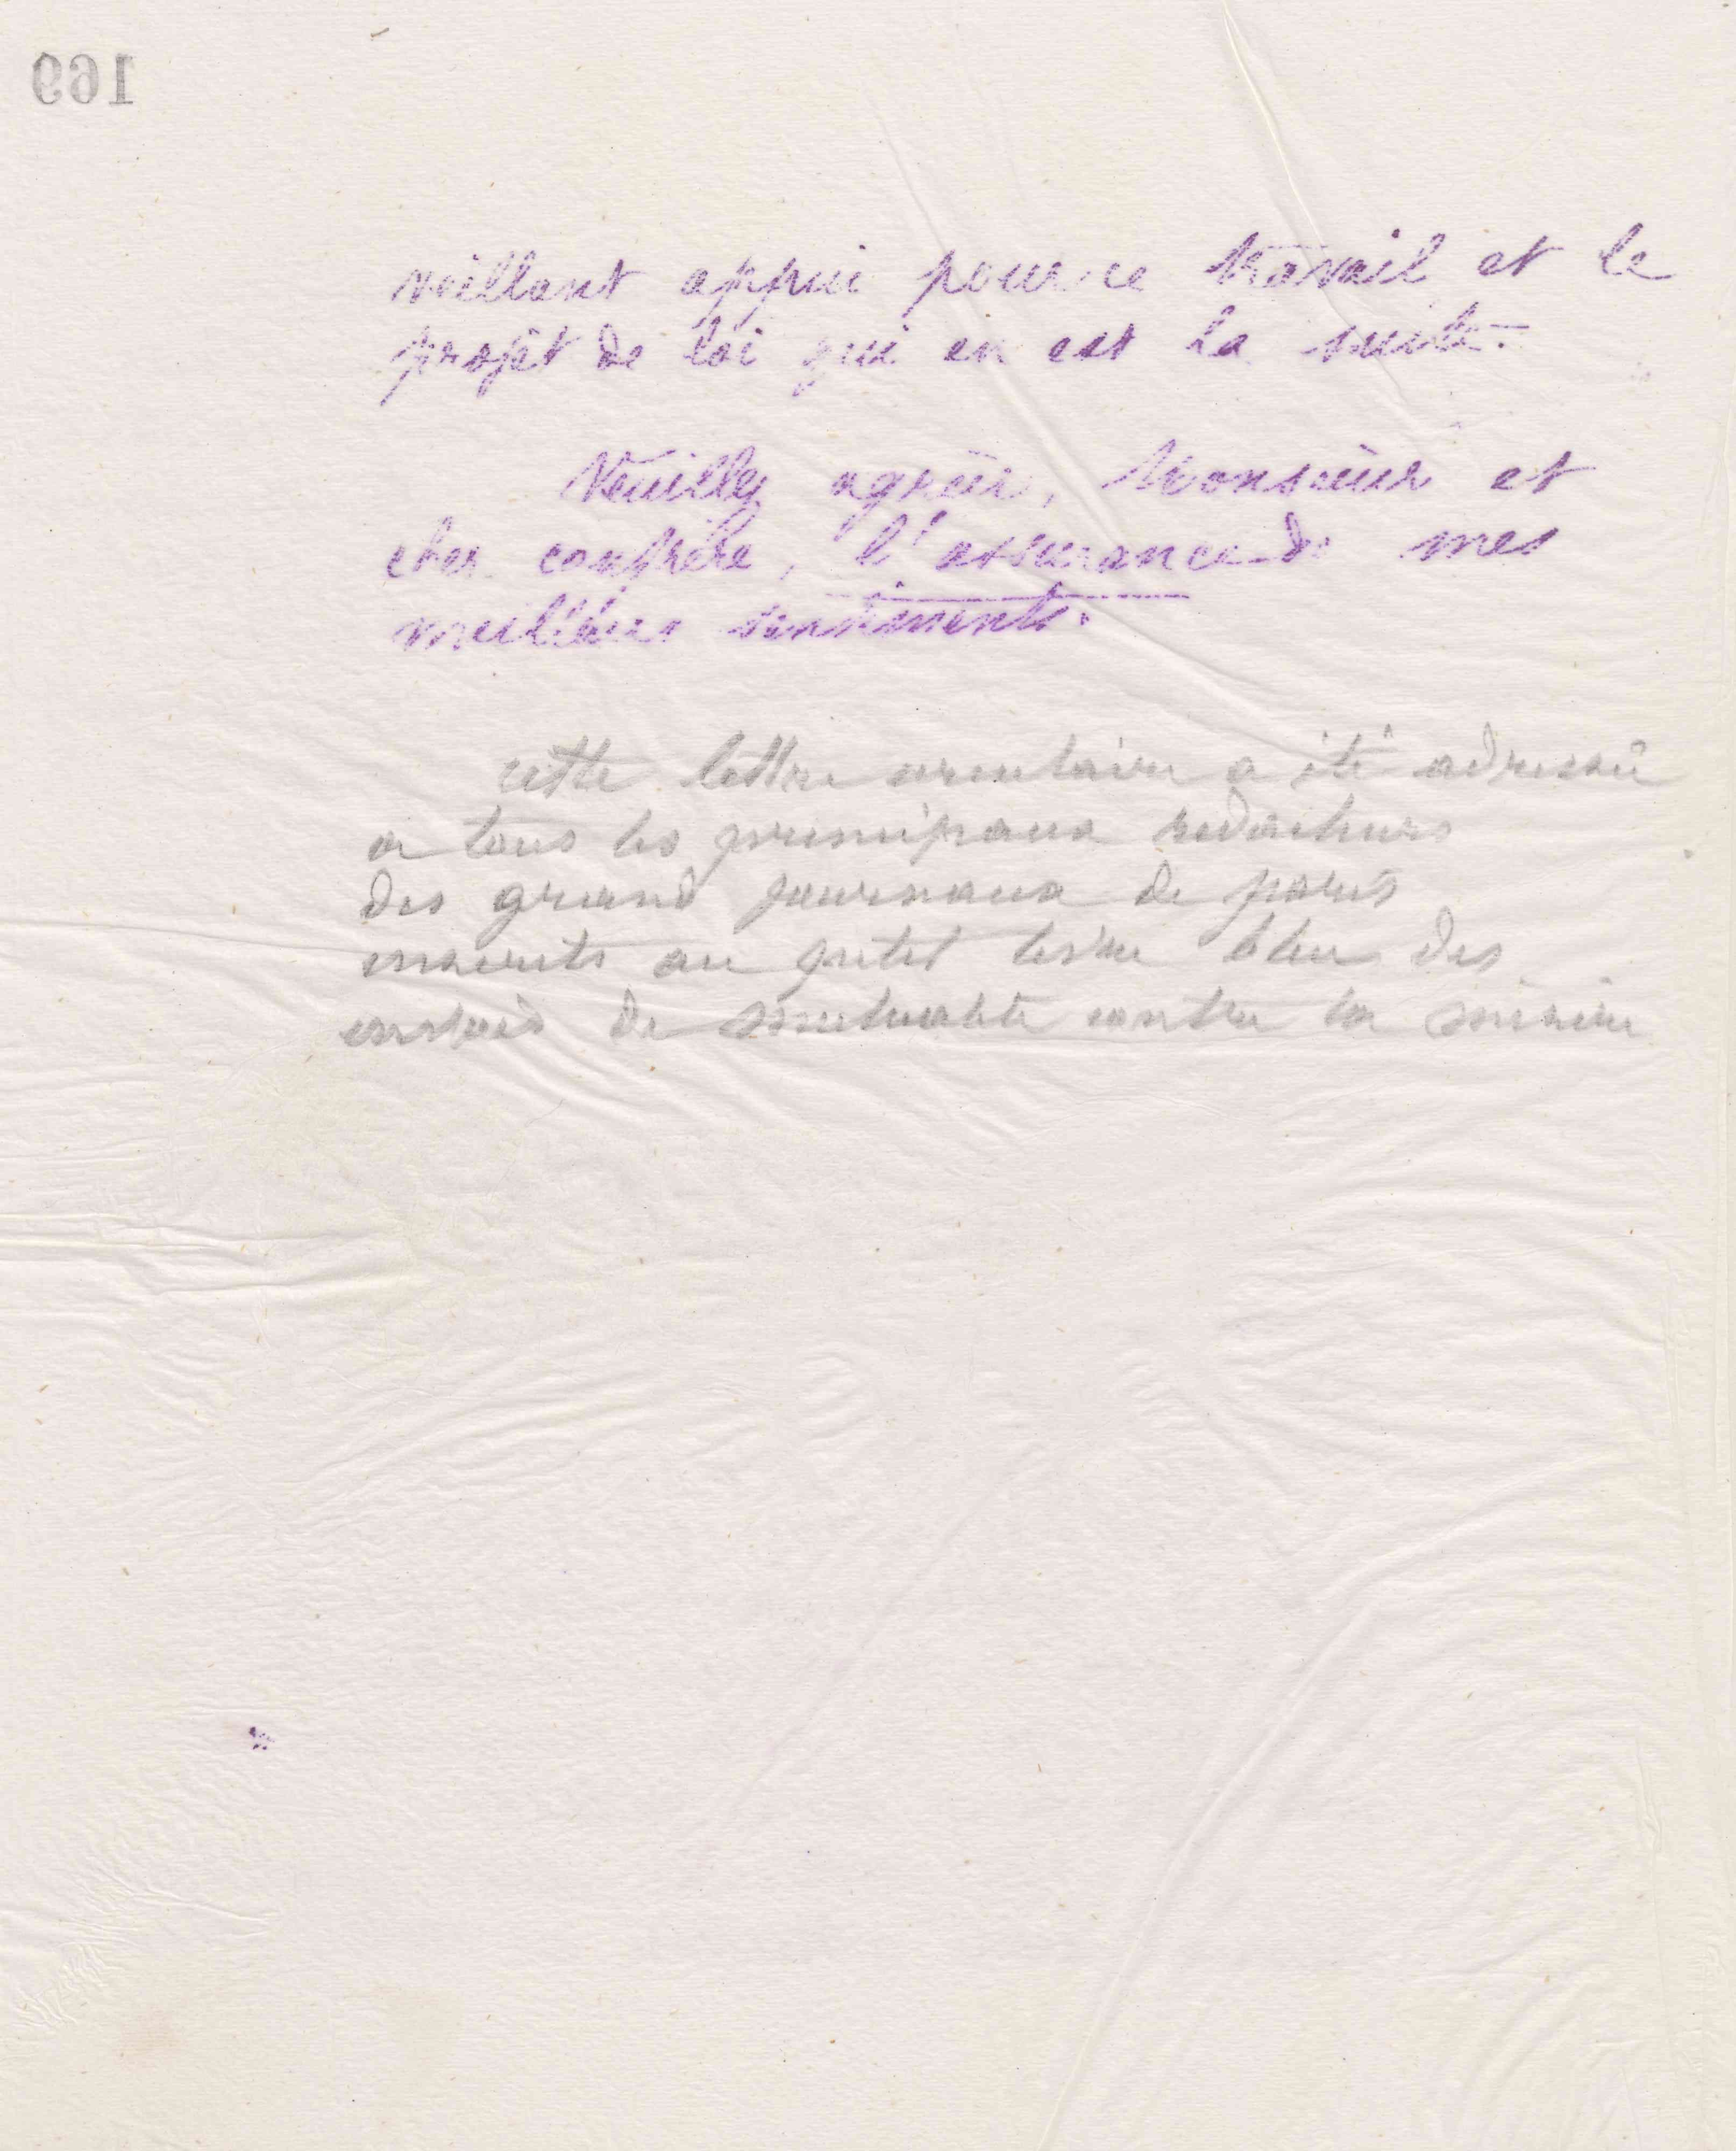 169
veillant appui pour ce travail et le
projet de loi qui en est la suite.
Veuillez agréer, Monsieur et
cher confrère, l'assurance de mes
meilleurs sentiments.
cette lettre circulaire a été adressée
a tous les principaux redacteurs
des grand journaux de paris
inscrits au petit livre bleu des
de mutualité contre la misère